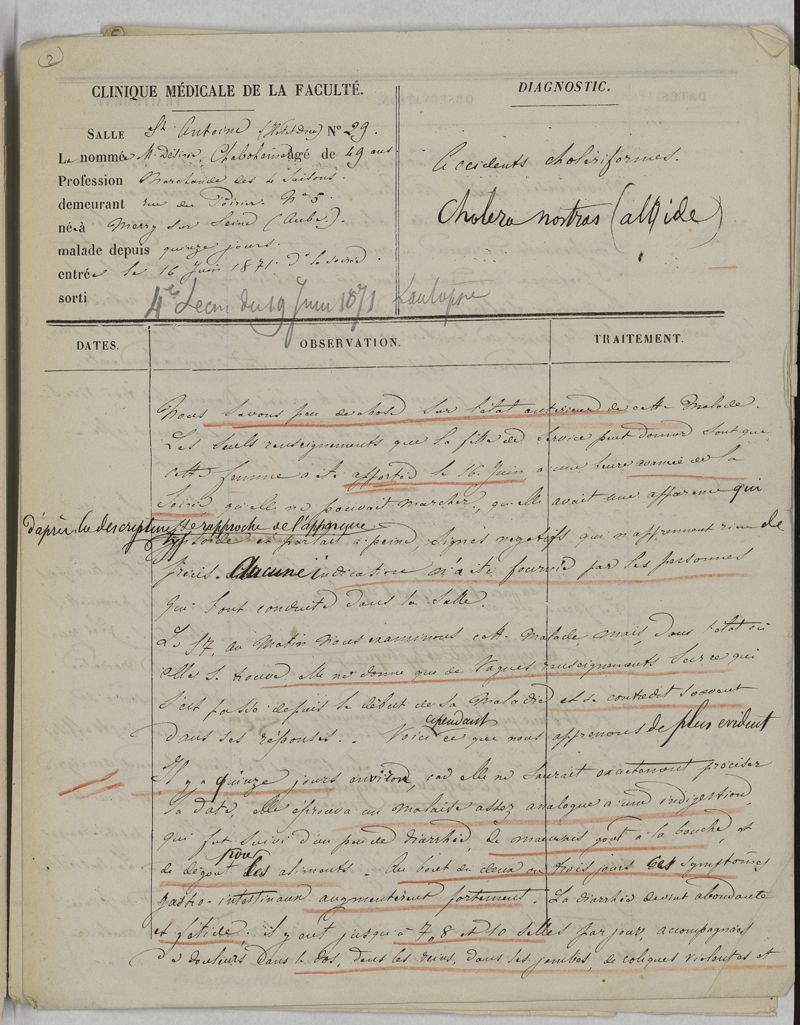 2
CLINIQUE MÉDICALE DE LA FACULTÉ.
SALLE St Antoine (Hôtel Dieu) N° 29.
La nommée Md Désirée, âgé de 49 ans
Profession Marchande des 4 saisons.
demeurant rue du Poirier. N° 5
né à Merry sur Seine (Aube).
malade depuis quinze jours.
entrée le 16 Juin 1871.
sorti
4e Lecon du 19 Juin 1871
DIAGNOSTIC.
Accidents cholériformes.
Cholera nostras (algide)
DATES.
OBSERVATION.
TRAITEMENT.
Nous savons peu de chose sur l'état antérieur de cette Malade.
Les seuls renseignements que la fille de service peut donner sont que
cette femme a été apportée le 16 Juin à une heure avancée de la
Soirée qu'elle ne pouvait marcher, qu'elle avait une apparence qui
d'après la description se rapproche de l'
typhoïde et parlait à peine, signes négatifs qui n'apprennent rien de
précis. Aucune indication n'a été fournie par les personnes
qui l'ont conduite dans la Salle.
Le 17, au Matin nous examinons cette Malade, mais, dans l'état où
elle se trouve elle ne donne que de vagues renseignements sur ce qui
s'est passé depuis le début de sa Maladie et se contredit souvent
dans ses réponses. - Voici cependant ce que nous apprenons de plus evident
Il y a quinze jours environ, car elle ne saurait exactement préciser
la date, elle éprouva un malaise assez analogue à une indigestion,
qui fut suivi d'un peu de diarrhée, de mauvais goût à la bouche, et
de dégout pour les aliments. - Au bout de deux ou trois jours ces symptomes
gastro-intestinaux augmentèrent fortement. La diarrhée devint abondante
et fétide. il y eut jusqu'à 7, 8 et 10 selles par jour, accompagnées
de douleurs dans le dos, dans les reins, dans les jambes, de coliques violentes et